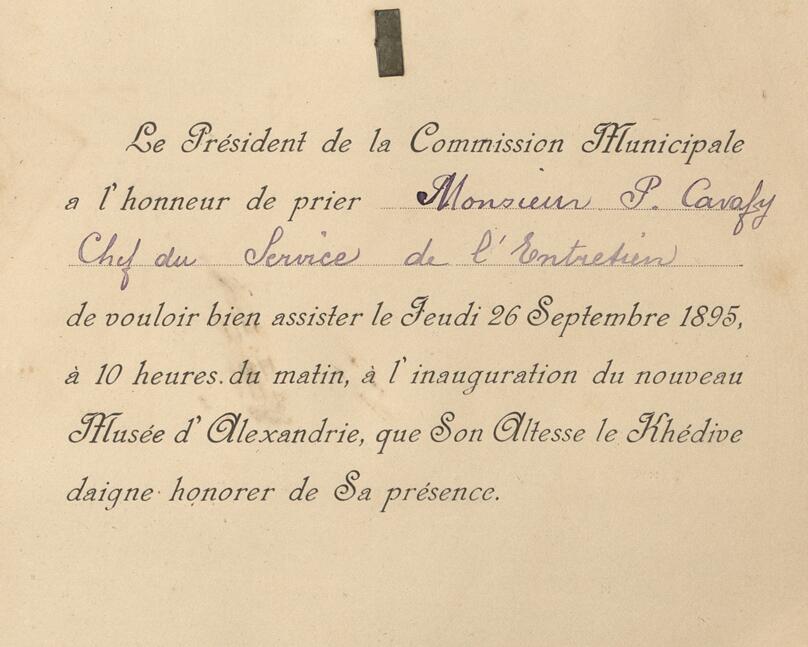 Le Président de la Commission Municipale
a l'honneur de prier Monsieur P. Cavafy
Chef du Service de l'Entretien
de vouloir bien assister le Jeudi 26 Septembre 1895,
à 10 heures du matin, à l'inauguration du nouveau
Musée d'Alexandrie, que Son Altesse le Khédive
daigne honorer de Sa présence.